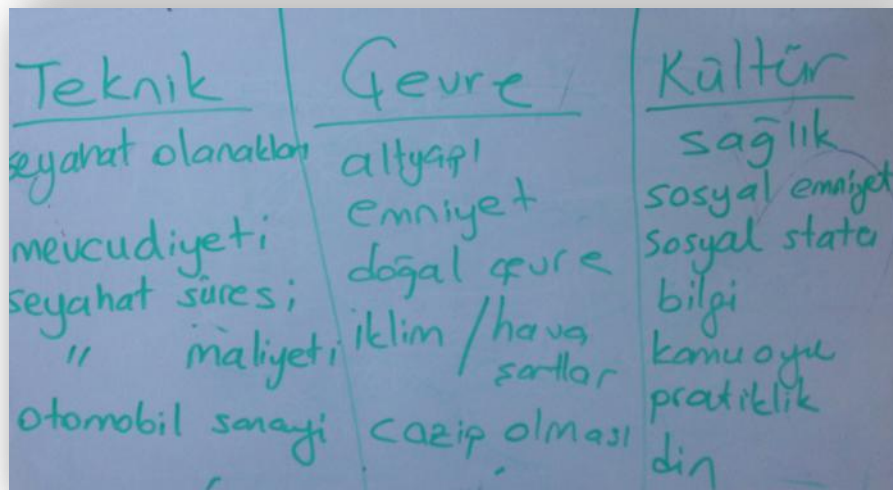 Teknik
seyahat olanakları
mevcudiyeti
seyahat süresi
" maliyeti
otomobil sanayi
Çevre
altyapı
emniyet
doğal çevre
iklim / hava
şartlar
cazip olması
Kültür
sağlık
sosyal emniyet
sosyal statü
bilgi
kamuoyu
pratiklik
din